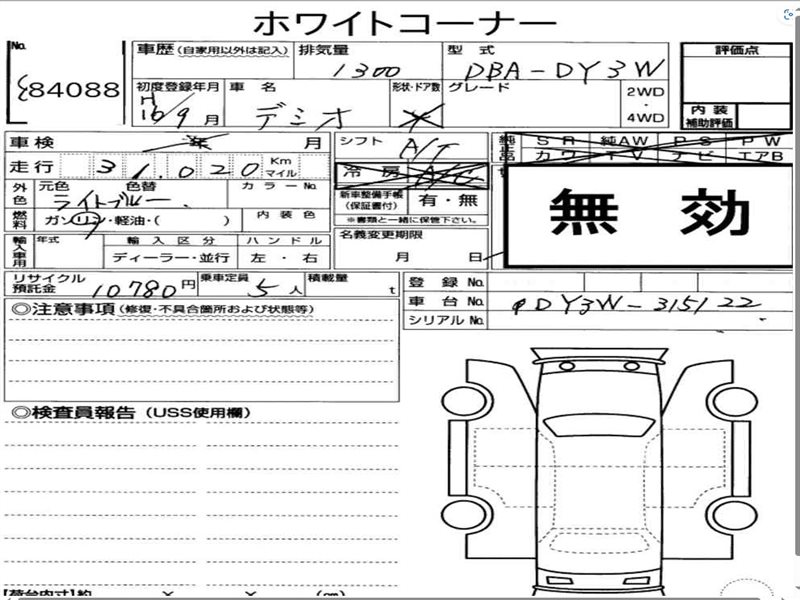 ホワイトコーナー
No. 84088
車歴(自家用以外は記入) 排気量 1300 型式 DBA-DY3W 評価点
初度登録年月 H 16/9月 車名 デミオ 形状・ドア数 グレード 2WD・4WD
内装補助評価
車検 年 月 シフト A/T 純正品 SR 純AW PS PW
走行 31.020 Km マイル 冷房 A/C カワ TV ナビ エアB
外色 元色 色替 ライトブルー カラーNo. 新車整備手帳(保証書付) 有・無
※書類と一緒に保管下さい。
無効
燃料 ガソリン・軽油・( ) 内装色
名義変更期限 月 日
輸入車用 年式 輸入区分 ハンドル
ディーラー・並行 左・右
リサイクル預託金 10780円 乗車定員 5人 積載量 t
登録No.
車台No. DY3W-315122
シリアルNo.
◎注意事項(修復・不具合箇所および状態等)
◎検査員報告(USS使用欄)